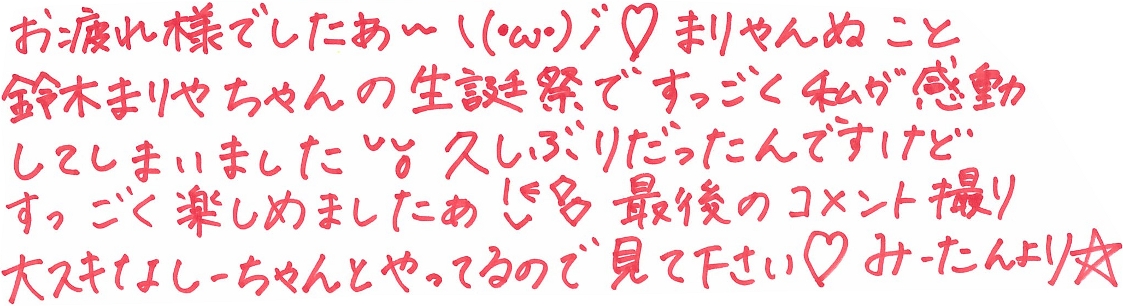 お疲れ様でしたあ〜\(・ω・)/♡まりやんぬこと
鈴木まりやちゃんの生誕祭ですっごく私が感動
してしまいました 久しぶりだったんですけど
すっごく楽しめましたあ 最後のコメント撮り
大スキなしーちゃんとやってるので見て下さい♡みーたんより☆